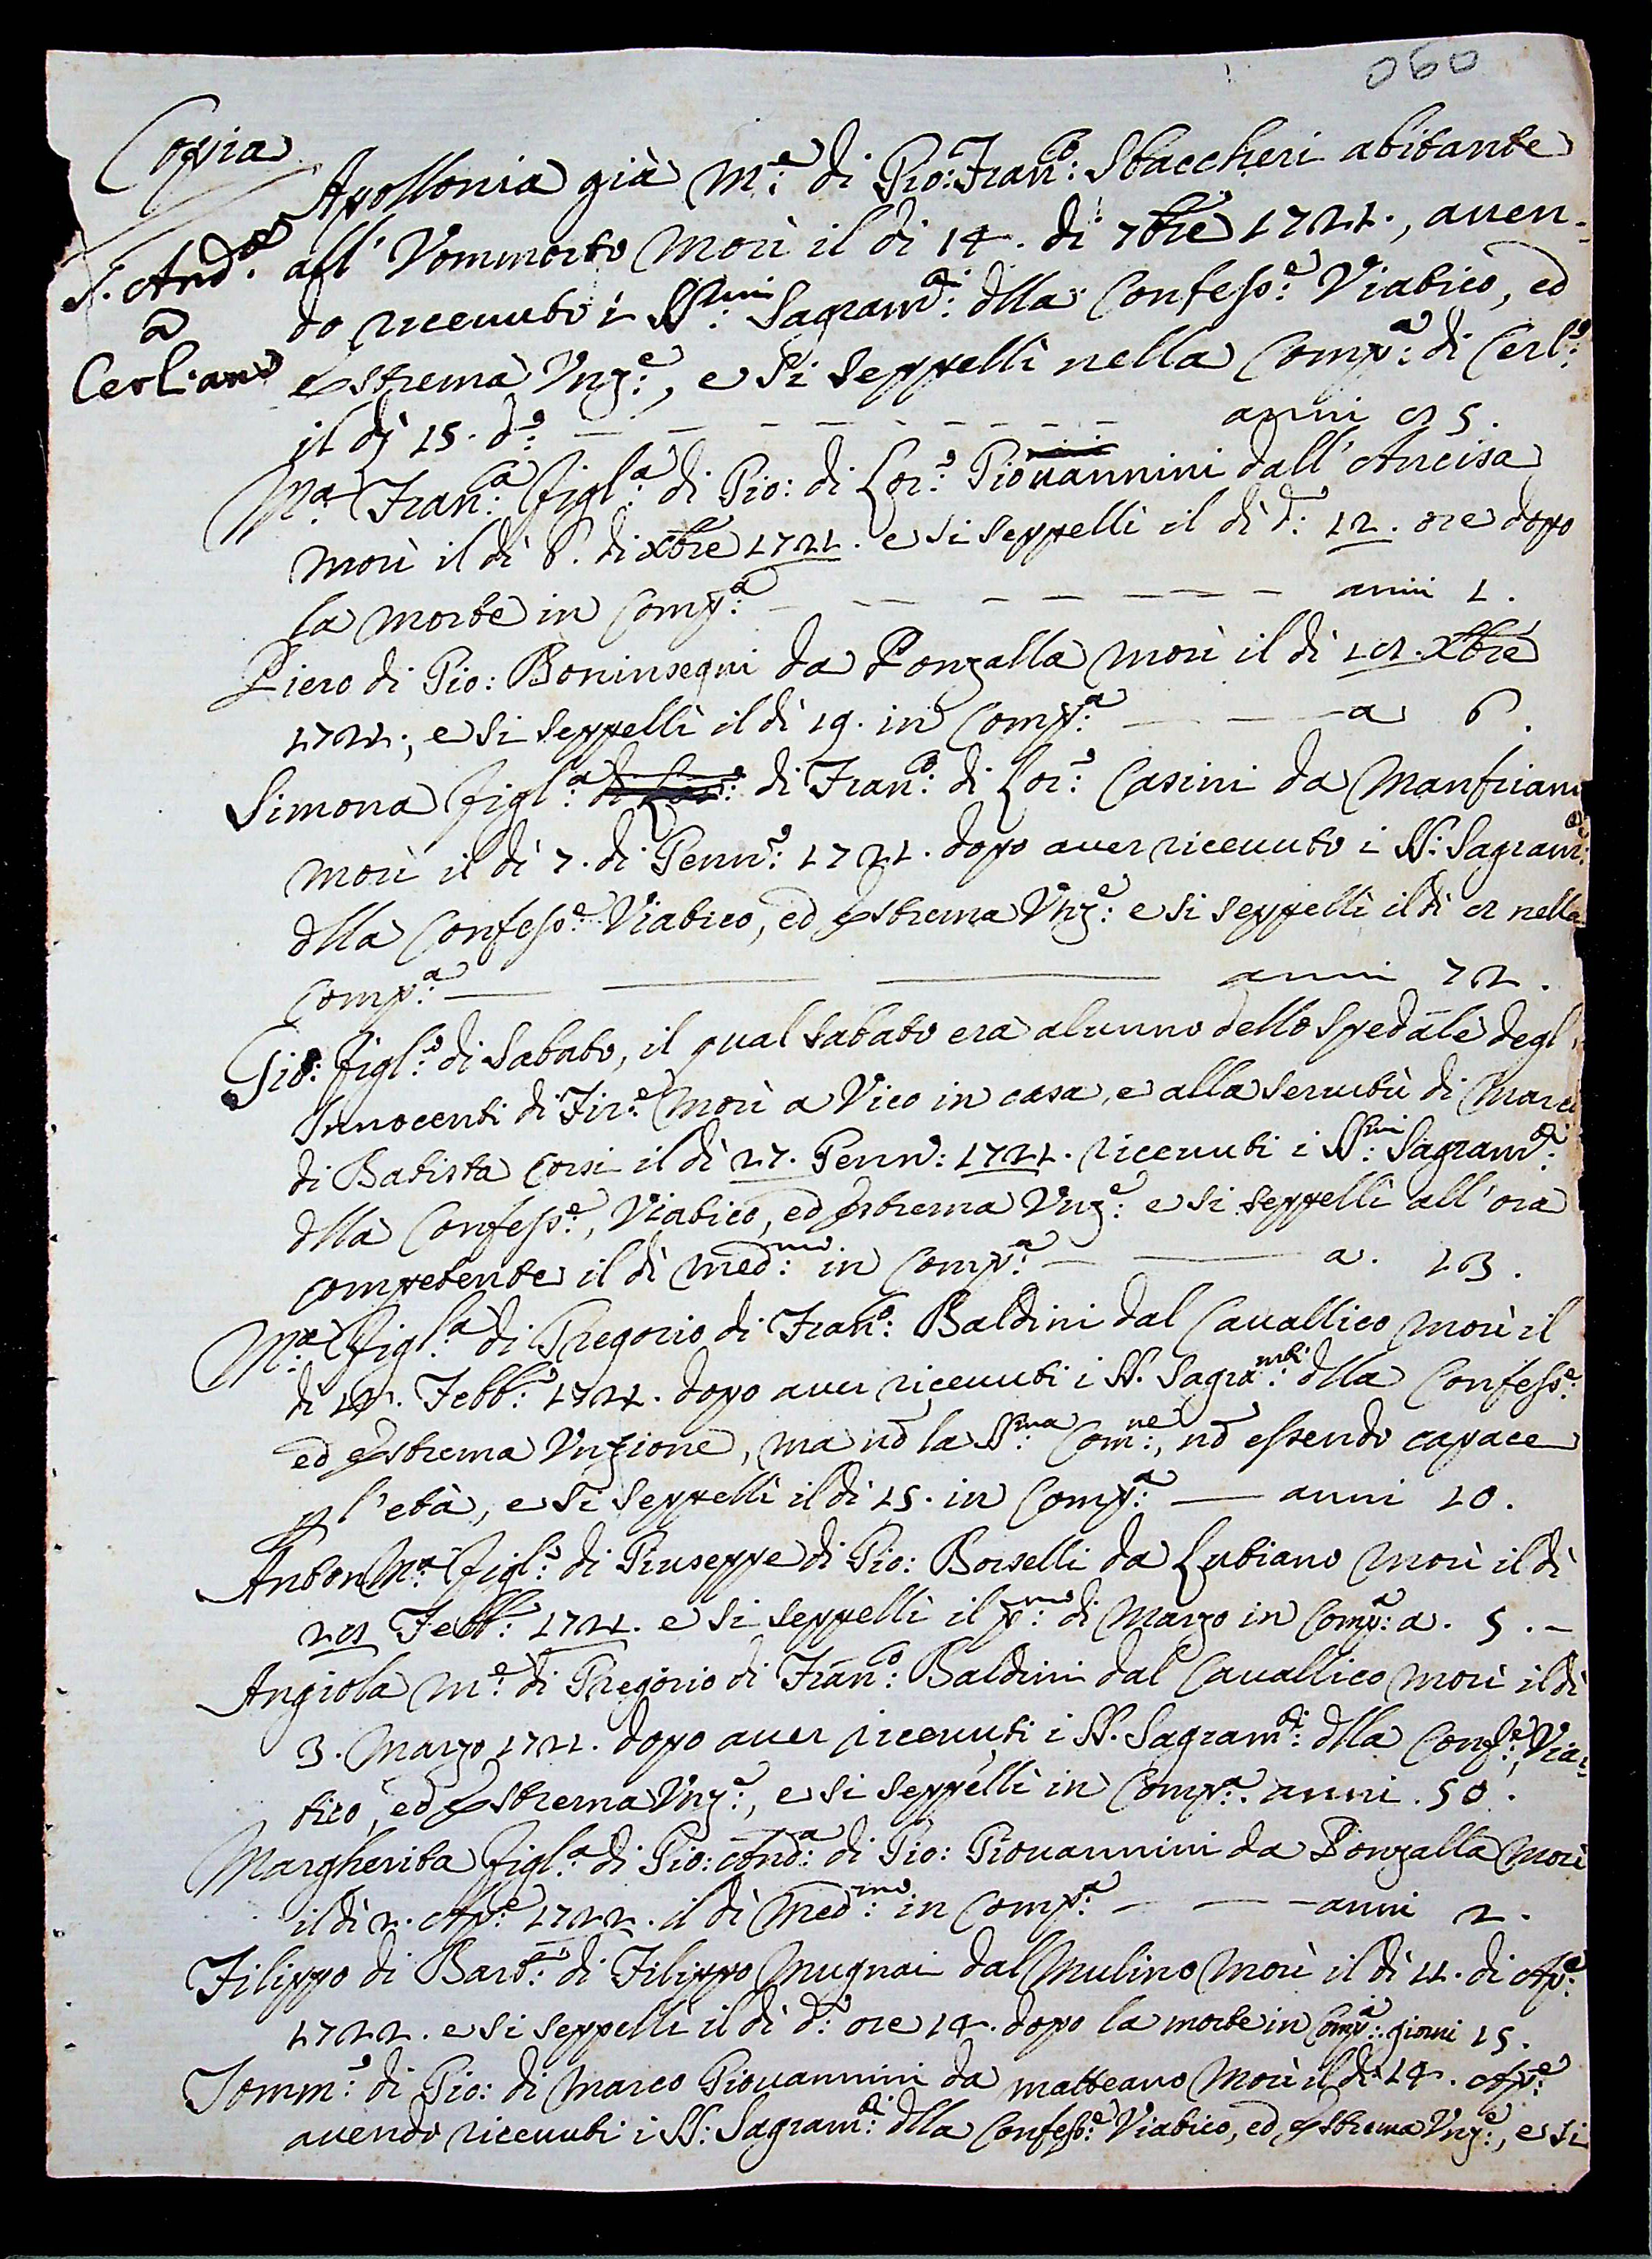 060
Copia
S. And:ª
a
Cerliano
Apollonia già M:ᵉ di Gio: Fran:ᶜᵒ Staccheri abitante
all' Vommorto morì il dì 14. di 7bre 1721., auen-
do riceuuto i SS:ᵐⁱ Sagram:ᵗⁱ dlla Confess:ᵉ Viatico, ed
Estrema Unz:ᵉ, e si seppellì nella Comp:ª di Cerl:º
il dì 15. d:º — — — — — — — — anni 85.
M:ª Fran:ᶜª figl:ª di Gio: di Lor:º Giovannini dall' Ancisa
morì il dì 6. di Xbre 1721. e si seppellì il dì d:º 12. ore dopo
la morte in Comp:ª — — — — — — — anni 1.
Piero di Gio: Boninsegni da Ponzalla morì il dì 18. Xbre
1721., e si seppellì il dì 19. in Comp:ª — — — a 6.
Simona figl:ª di Lor:º di Fran:ᶜᵒ di Lor:º Casini da Manfriano
morì il dì 7. di Genn:º 1721. dopo auer riceuuto i SS: Sagram:ᵗⁱ
dlla Confess:ᵉ Viatico, ed Estrema Unz:ᵉ e si seppellì il dì 8 nella
Comp:ª — — — anni 72.
Gio: figl:º di Sabato, il qual Sabato era alunno dello spedale degl'
Innocenti di Fir:ᵉ morì a Vico in casa, e alla seruitù di Marco
di Batista Corsi il dì 27. Genn: 1721. riceuuti i SS:ᵐⁱ Sagram:ᵗⁱ
dlla Confess:ᵉ, Viatico, ed Estrema Unz:ᵉ e si seppellì all' ora
competente il dì med:ᵐᵒ in Comp:ª — — a. 13.
M:ª figl:ª di Gregorio di Fran:ᶜᵒ Baldini dal Cauallico morì il
dì 14. Febb:º 1721. dopo auer riceuuti i SS. Sagra:ᵐᵗⁱ dlla Confess:ᵉ
ed Estrema Unzione, ma nō la SS:ᵐª Com:ⁿᵉ, nō essendo capace
p l'età, e si seppellì il dì 15. in Comp:ª — anni 10.
Anton M:ª figl:º di Giuseppe di Gio: Borselli da Lutiano morì il dì
28 Febb: 1721. e si seppellì il p:ᵐᵒ di Marzo in Comp:ª a. 5. –
Angiola M:ᵉ di Gregorio di Fran:ᶜᵒ Baldini dal Cauallico morì il dì
3. Marzo 1721. dopo auer riceuuti i SS. Sagram:ᵗⁱ dlla Conf:ᵉ, Via-
tico, ed Estrema Unz:ᵉ, e si seppellì in Comp:ª. anni. 50.
Margherita figl:ª di Gio: And:ª di Gio: Giouannini da Ponzalla morì
il dì 2. Ap:ᵉ 1722. il dì med:ᵐᵒ in Comp:ª — — — anni 2.
Filippo di Bart:º di Filippo Mugnai dal Mulino morì il dì 11. di Ap:ᵉ
1722. e si seppellì il dì d:º ore 14. dopo la morte in Comp:ª. giorni 15.
Tomm:º di Gio: di Marco Giouannini da matteano morì il dì 14. Ap:ᵉ
auendo riceuuti i SS: Sagram:ᵗⁱ dlla Confess:ᵉ Viatico, ed Estrema Unz:ᵉ, e si